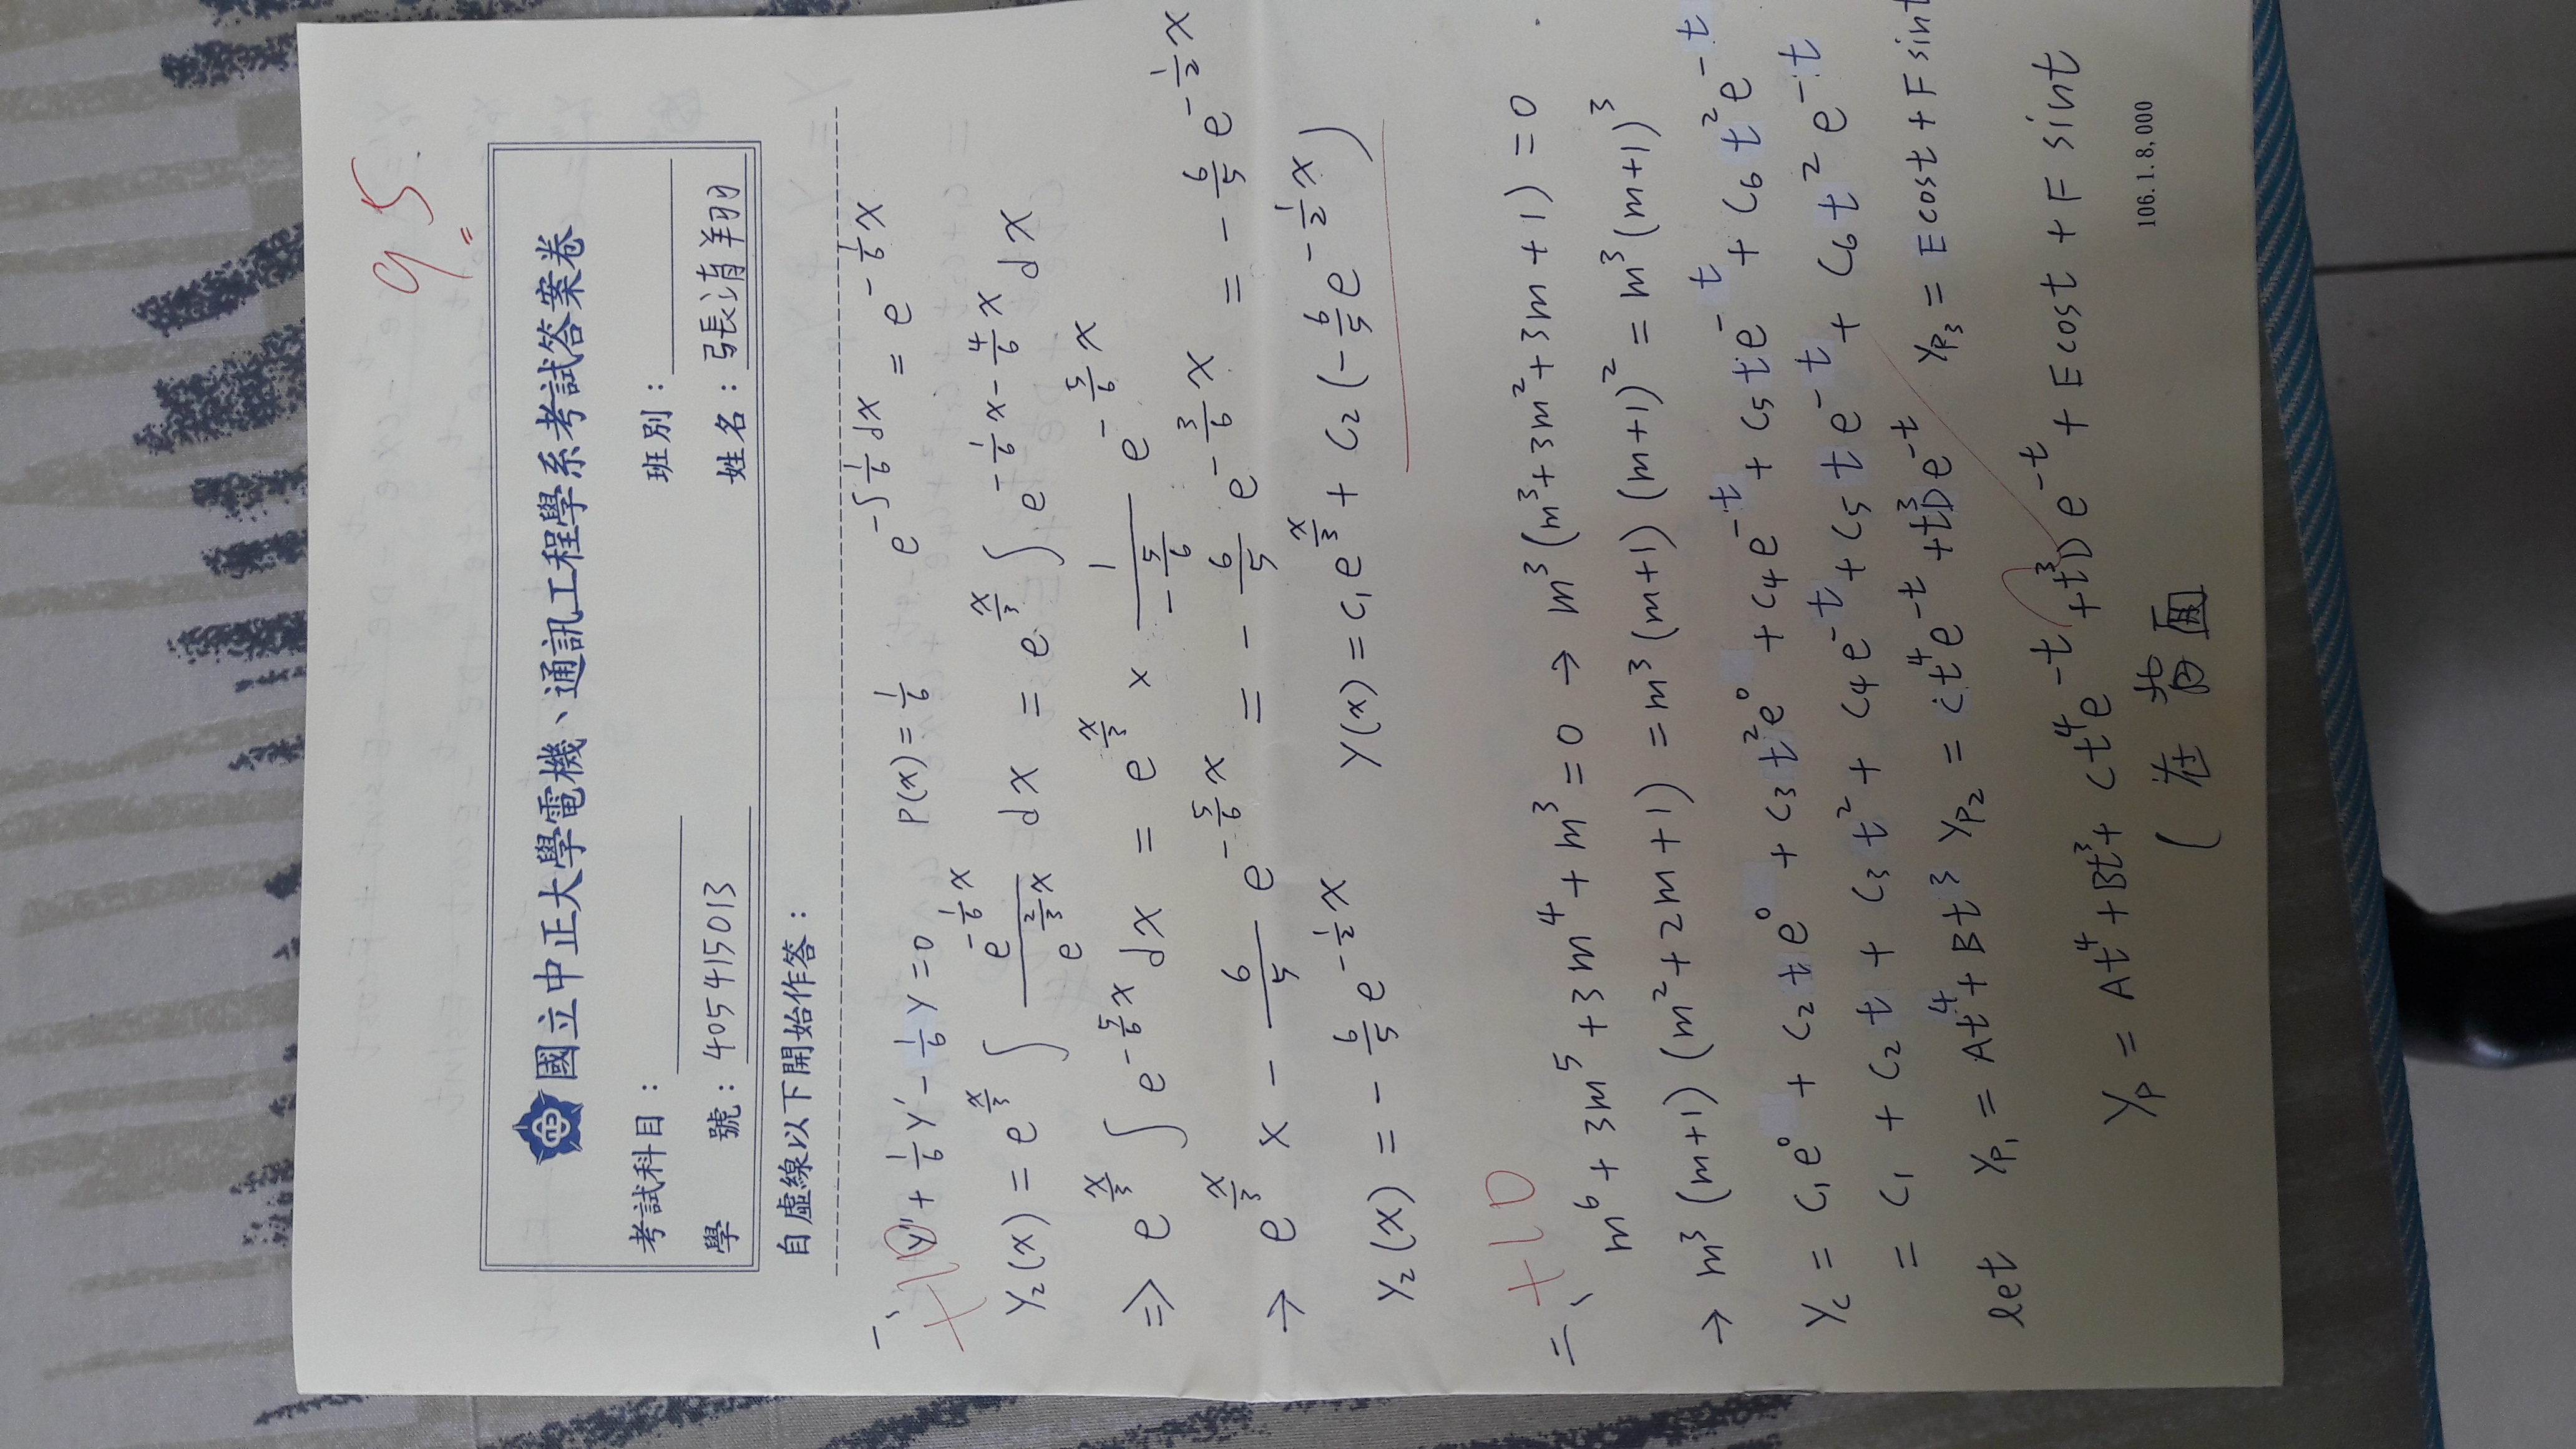 95
國立中正大學電機、通訊工程學系考試答案卷
考試科目：
班別：
學 號：405415013
姓名：張清翔
自虛線以下開始作答：
一、+10
y'' + 1/6 y' - 1/6 y = 0 P(x) = 1/6 e^{-∫1/6 dx} = e^{-1/6 x}
y₂(x) = e^{x/3} ∫ e^{-1/6 x} / e^{2/3 x} dx = e^{x/3} ∫ e^{-1/6 x - 4/6 x} dx
⇒ e^{x/3} ∫ e^{-5/6 x} dx = e^{x/3} × 1/(-5/6) e^{-5/6 x}
→ e^{x/3} × - 6/5 e^{-5/6 x} = - 6/5 e^{-3/6 x} = - 6/5 e^{-1/2 x}
y₂(x) = - 6/5 e^{-1/2 x} y(x) = c₁e^{x/3} + c₂(- 6/5 e^{-1/2 x})
二、+10
m⁶ + 3m⁵ + 3m⁴ + m³ = 0 → m³(m³ + 3m² + 3m + 1) = 0
→ m³(m+1)(m² + 2m + 1) = m³(m+1)(m+1)² = m³(m+1)³
y_c = c₁e⁰ + c₂te⁰ + c₃t²e⁰ + c₄e^{-t} + c₅te^{-t} + c₆t²e^{-t}
= c₁ + c₂t + c₃t² + c₄e^{-t} + c₅te^{-t} + c₆t²e^{-t}
let y_{p₁} = At⁴ + Bt³ y_{p₂} = ct⁴e^{-t} + t³De^{-t} y_{p₃} = E cost + F sint
y_p = At⁴ + Bt³ + ct⁴e^{-t} + t³De^{-t} + E cost + F sint
(在背面
106.1.8,000